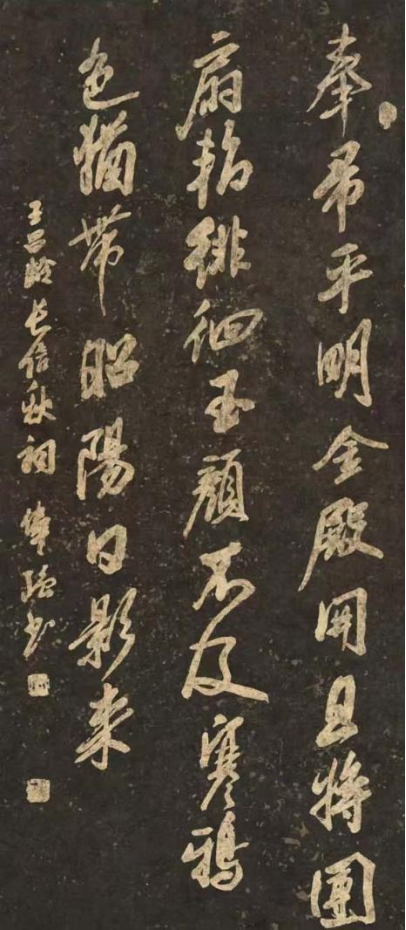 奉帚平明金殿開且將團
扇暫徘徊玉顏不及寒鴉
色猶帶昭陽日影來
王昌齡長信秋詞 書